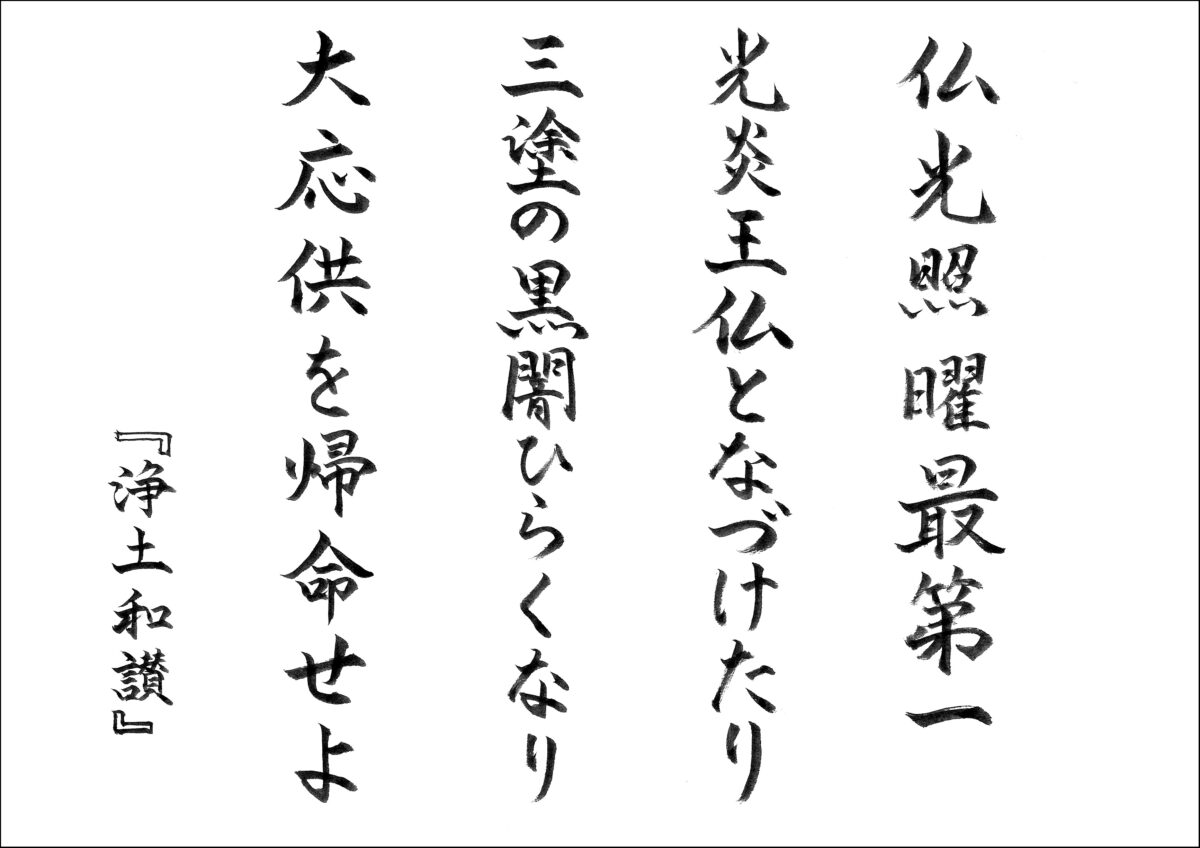 仏光照曜最第一
光炎王仏となづけたり
三塗の黒闇ひらくなり
大応供を帰命せよ
『浄土和讃』